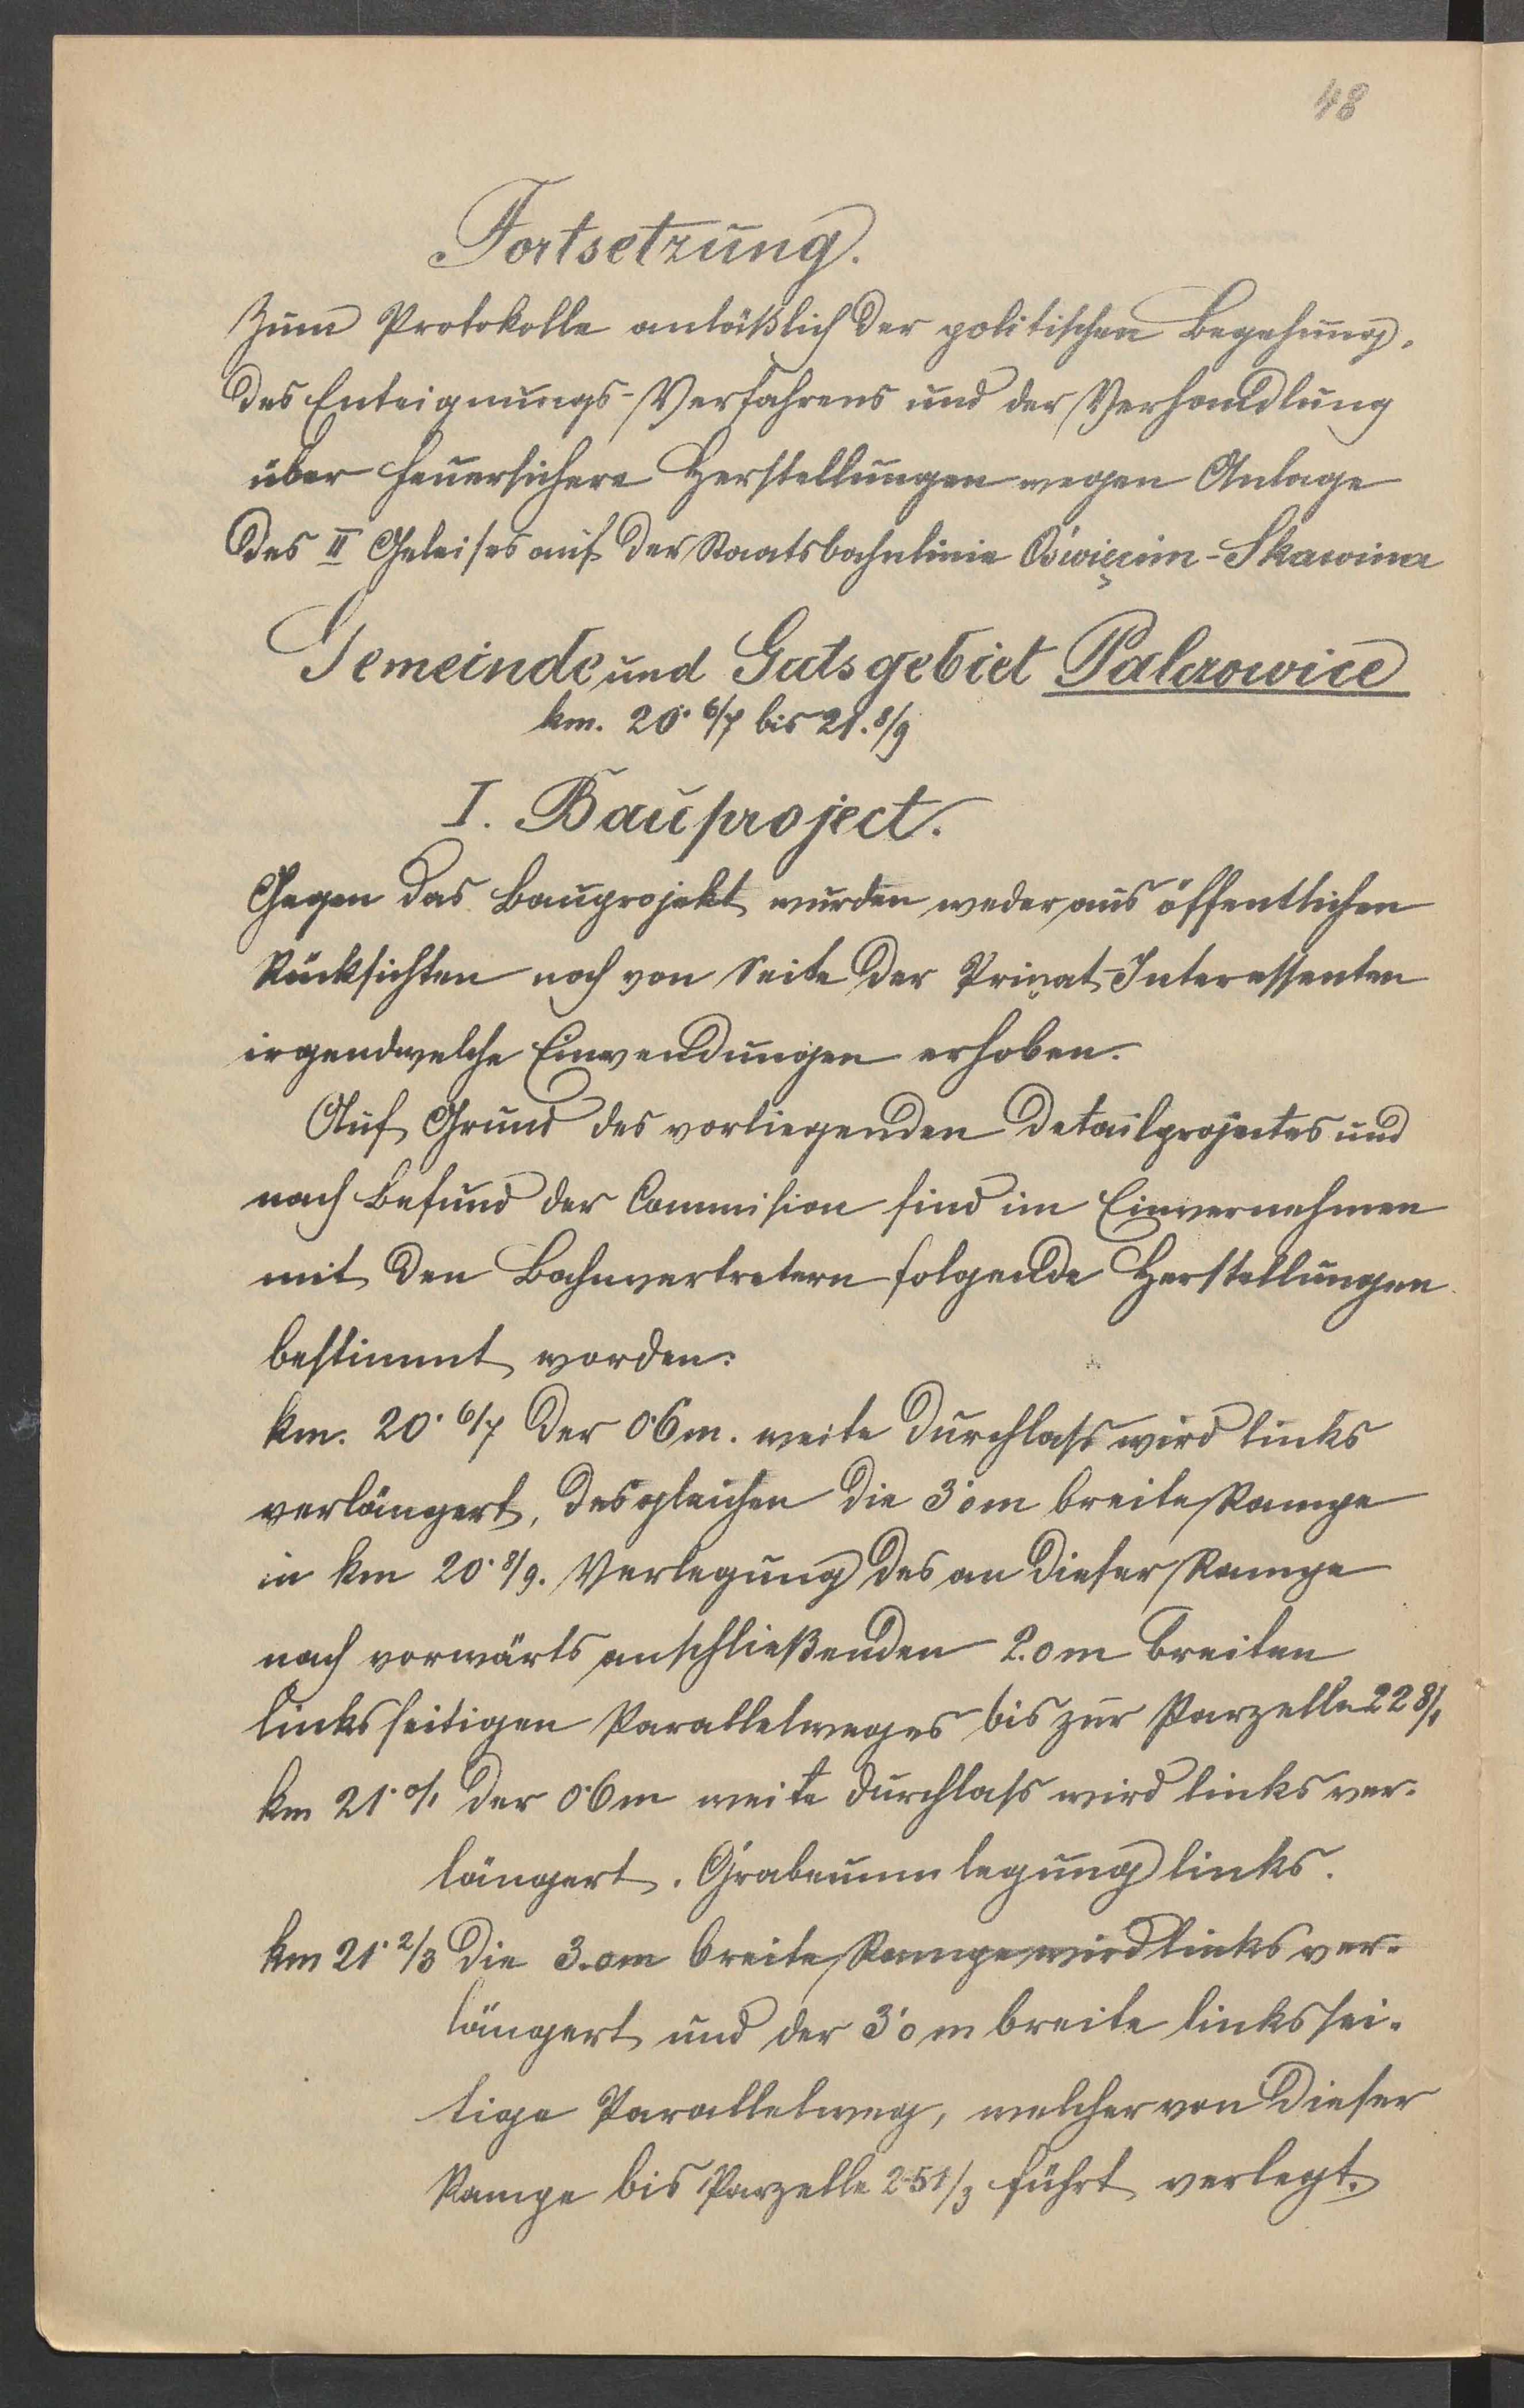 48
Fortsetzung.
Zum Protokolle anläßlich der politischen Begehung,
des Enteignungs-Verfahrens und der Verhandlung
über feuersichere Herstellungen wegen Anlage
des II Geleises auf der Staatsbahnlinie Oświęcim-Skawina
Gemeinde und Gutsgebiet Palczowice
km. 20· 6/7 bis 21. 8/9
I. Bauproject.
Gegen das Bauprojekt wurden weder aus öffentlichen
Rücksichten noch von Seite der Privat-Interessenten
irgendwelche Einwendungen erhoben.
Auf Grund des vorliegenden Detailprojectes und
nach Befund der Commision sind im Einvernehmen
mit den Bahnvertretern folgende Herstellungen
bestimmt worden:
km. 20· 6/7 der 0·6m. weite Durchlass wird links
verlängert, desgleichen die 3·0m breite Rampe
in km 20· 8/9. Verlegung des an dieser Rampe
nach vorwärts anschließenden 2.0m breiten
linksseitigen Parallelweges bis zur Parzelle 228/1
km 21· 0/1 der 0·6m weite Durchlass wird links ver-
längert. Grabenumlegung links.
km 21· 2/3 die 3.0m breite Rampe wird links ver-
längert und der 3·0m breite linkssei-
tige Parallelweg, welcher von dieser
Rampe bis Parzelle 251/3 führt verlegt.